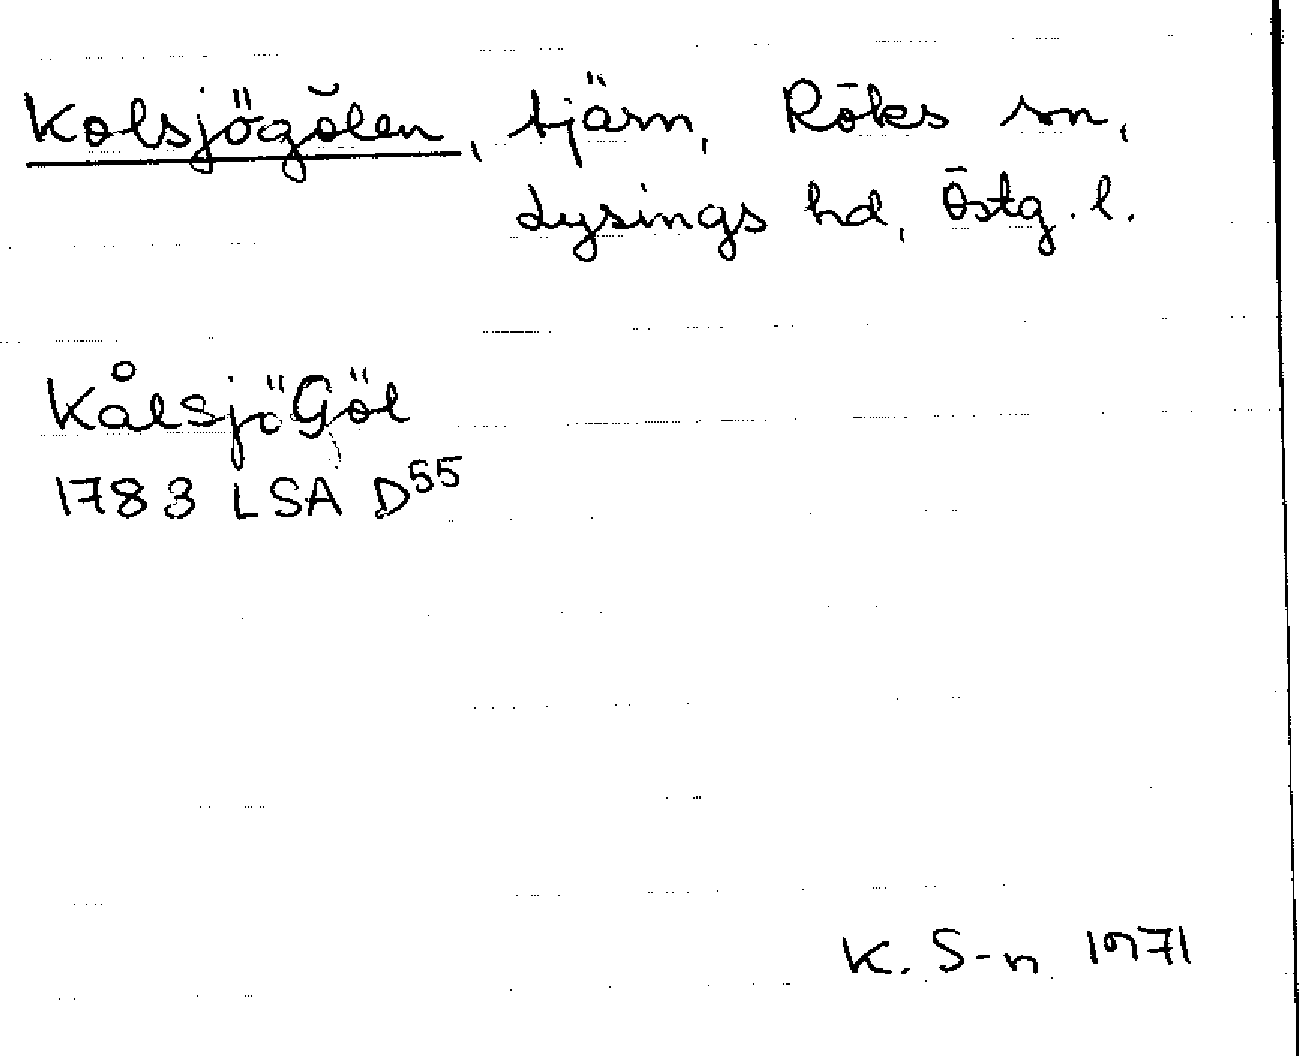 Kolsjögölen, tjärn, Röks sn,
Lysings hd, Östg. l.
KålsjöGöl
1783 LSA D55
K. S-n 1971